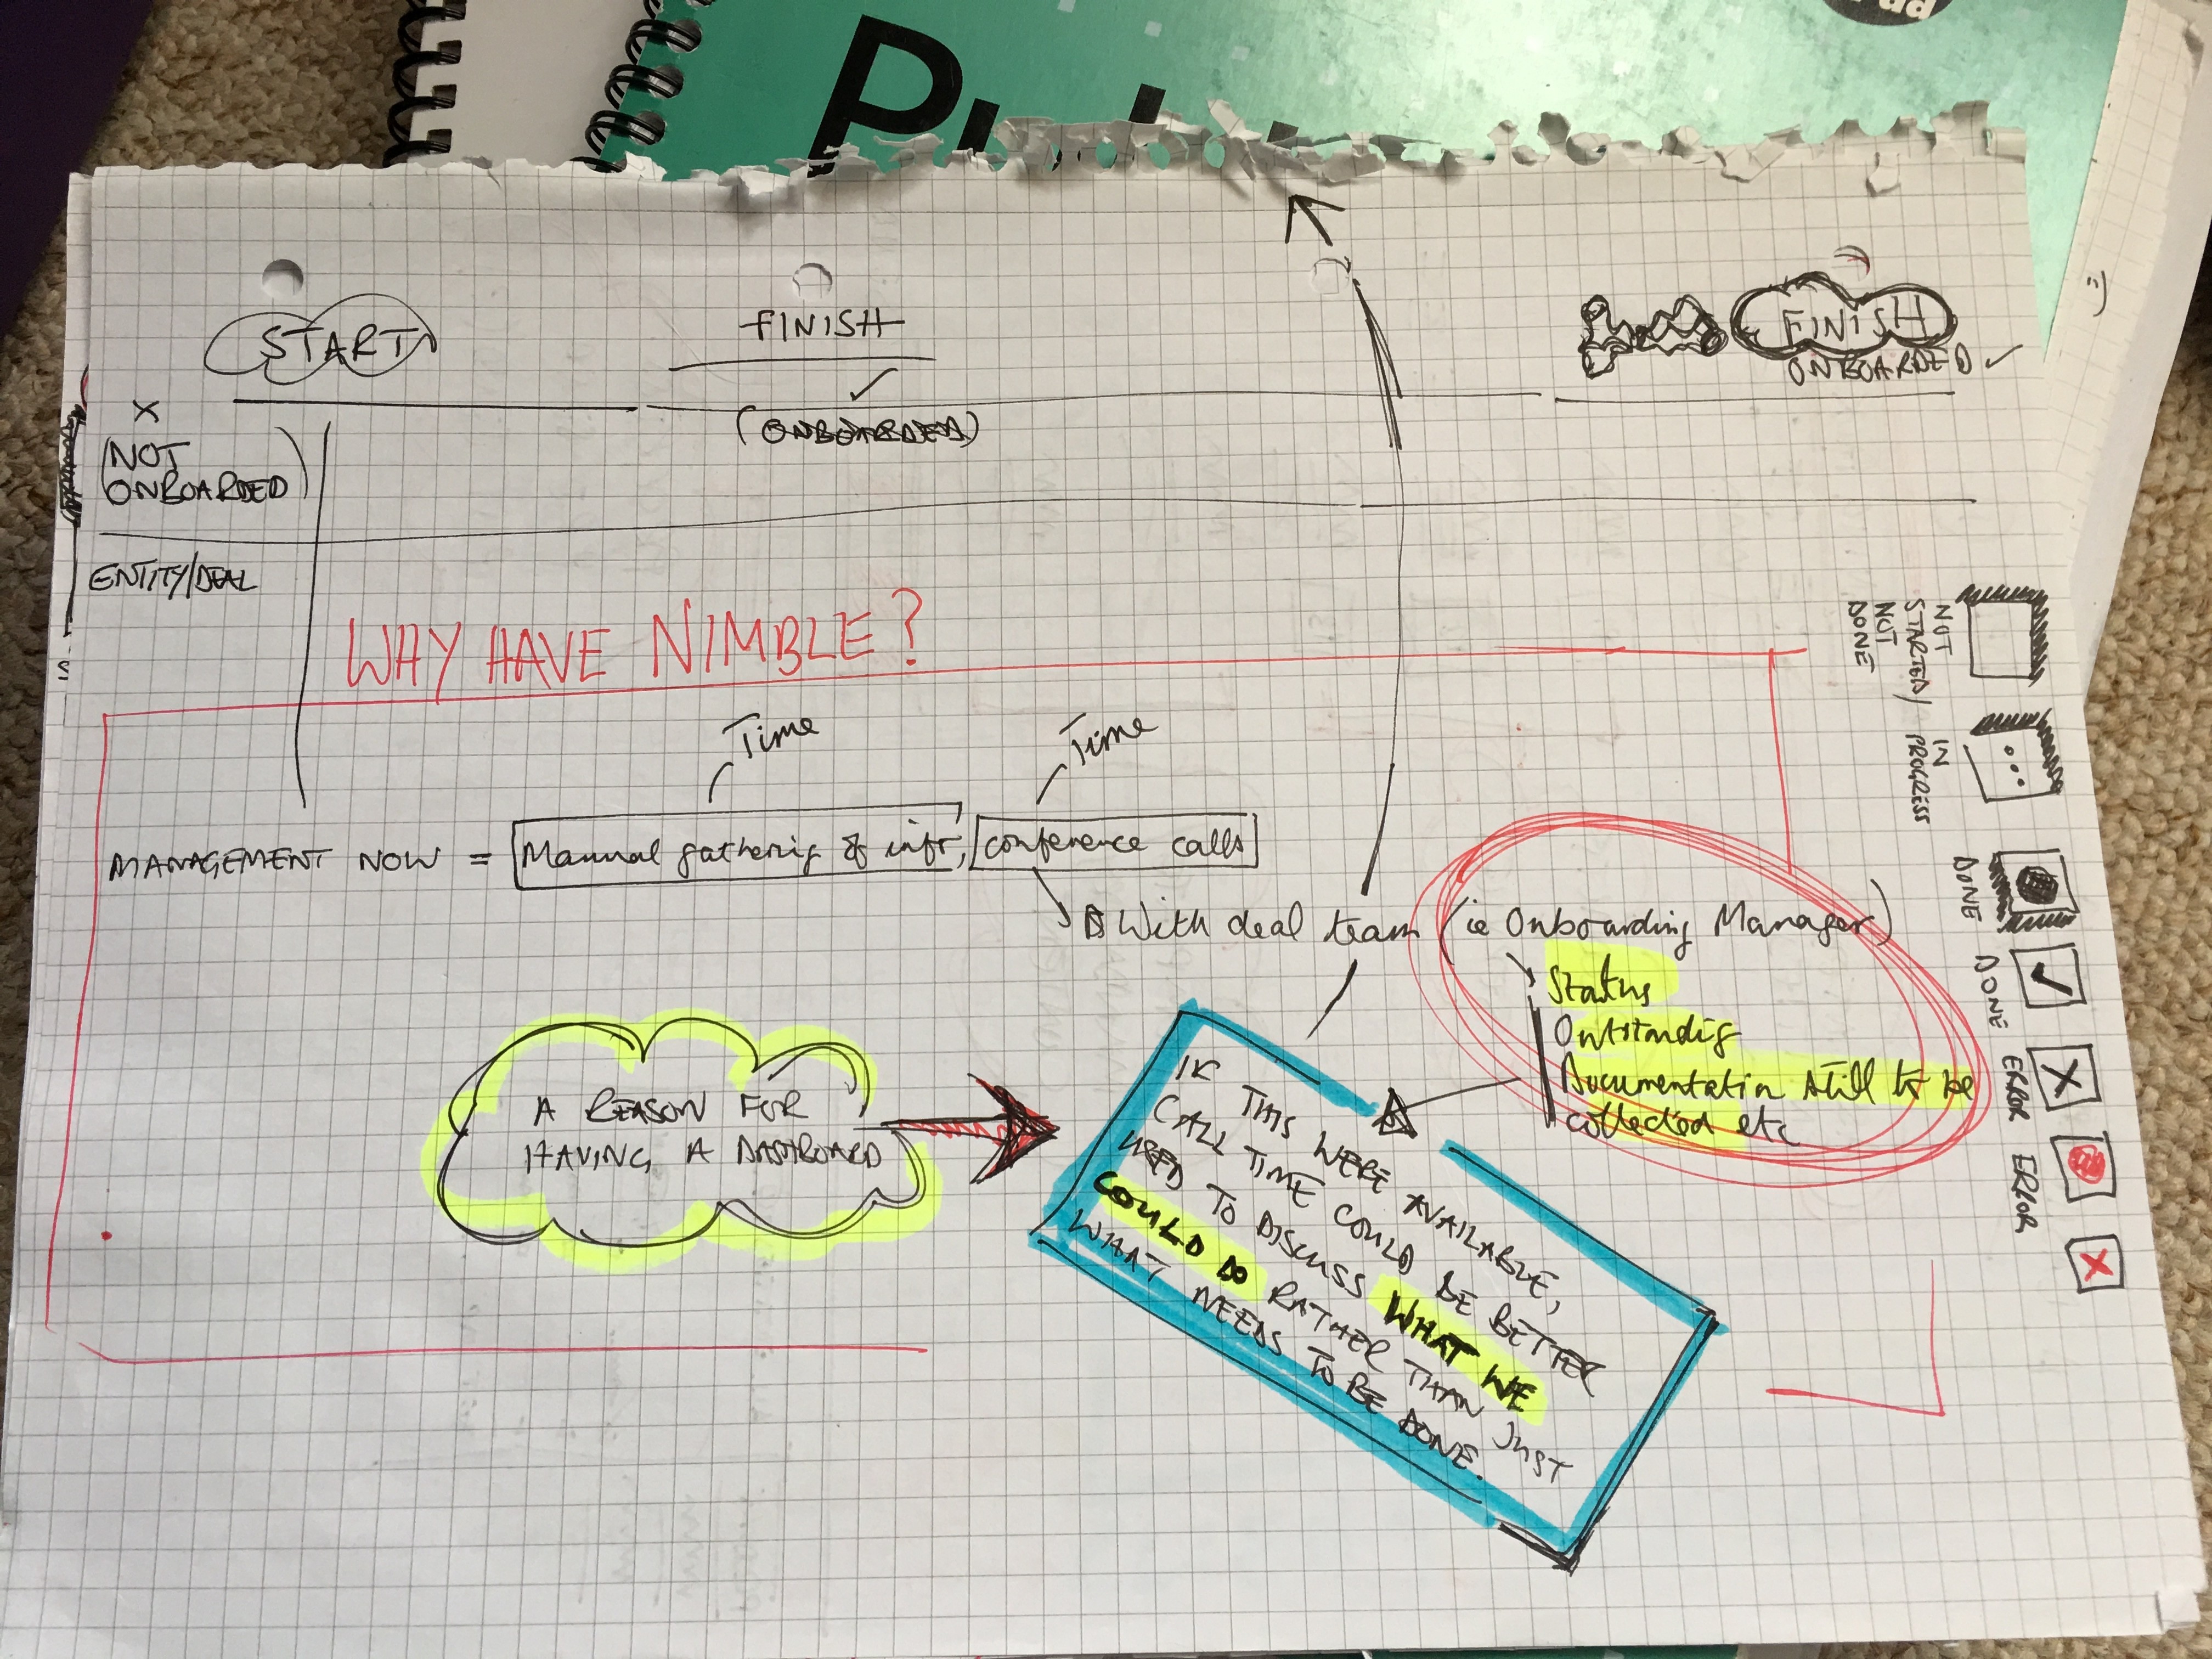 START
FINISH
FINISH
ONBOARDED ✓
✓
(ONBOARDED)
X
(NOT
ONBOARDED)
ENTITY/DEAL
WHY HAVE NIMBLE?
Time
Time
MANAGEMENT NOW = Manual gathering of info, conference calls
With deal team (ie Onboarding Manager)
Status
Outstanding
Documentation still to be
collected etc
A REASON FOR
HAVING A DASHBOARD
IF THIS WERE AVAILABLE,
CALL TIME COULD BE BETTER
USED TO DISCUSS WHAT WE
COULD DO RATHER THAN JUST
WHAT NEEDS TO BE DONE.
NOT
STARTED/
NOT
DONE
IN
PROGRESS
DONE
DONE
ERROR
ERROR